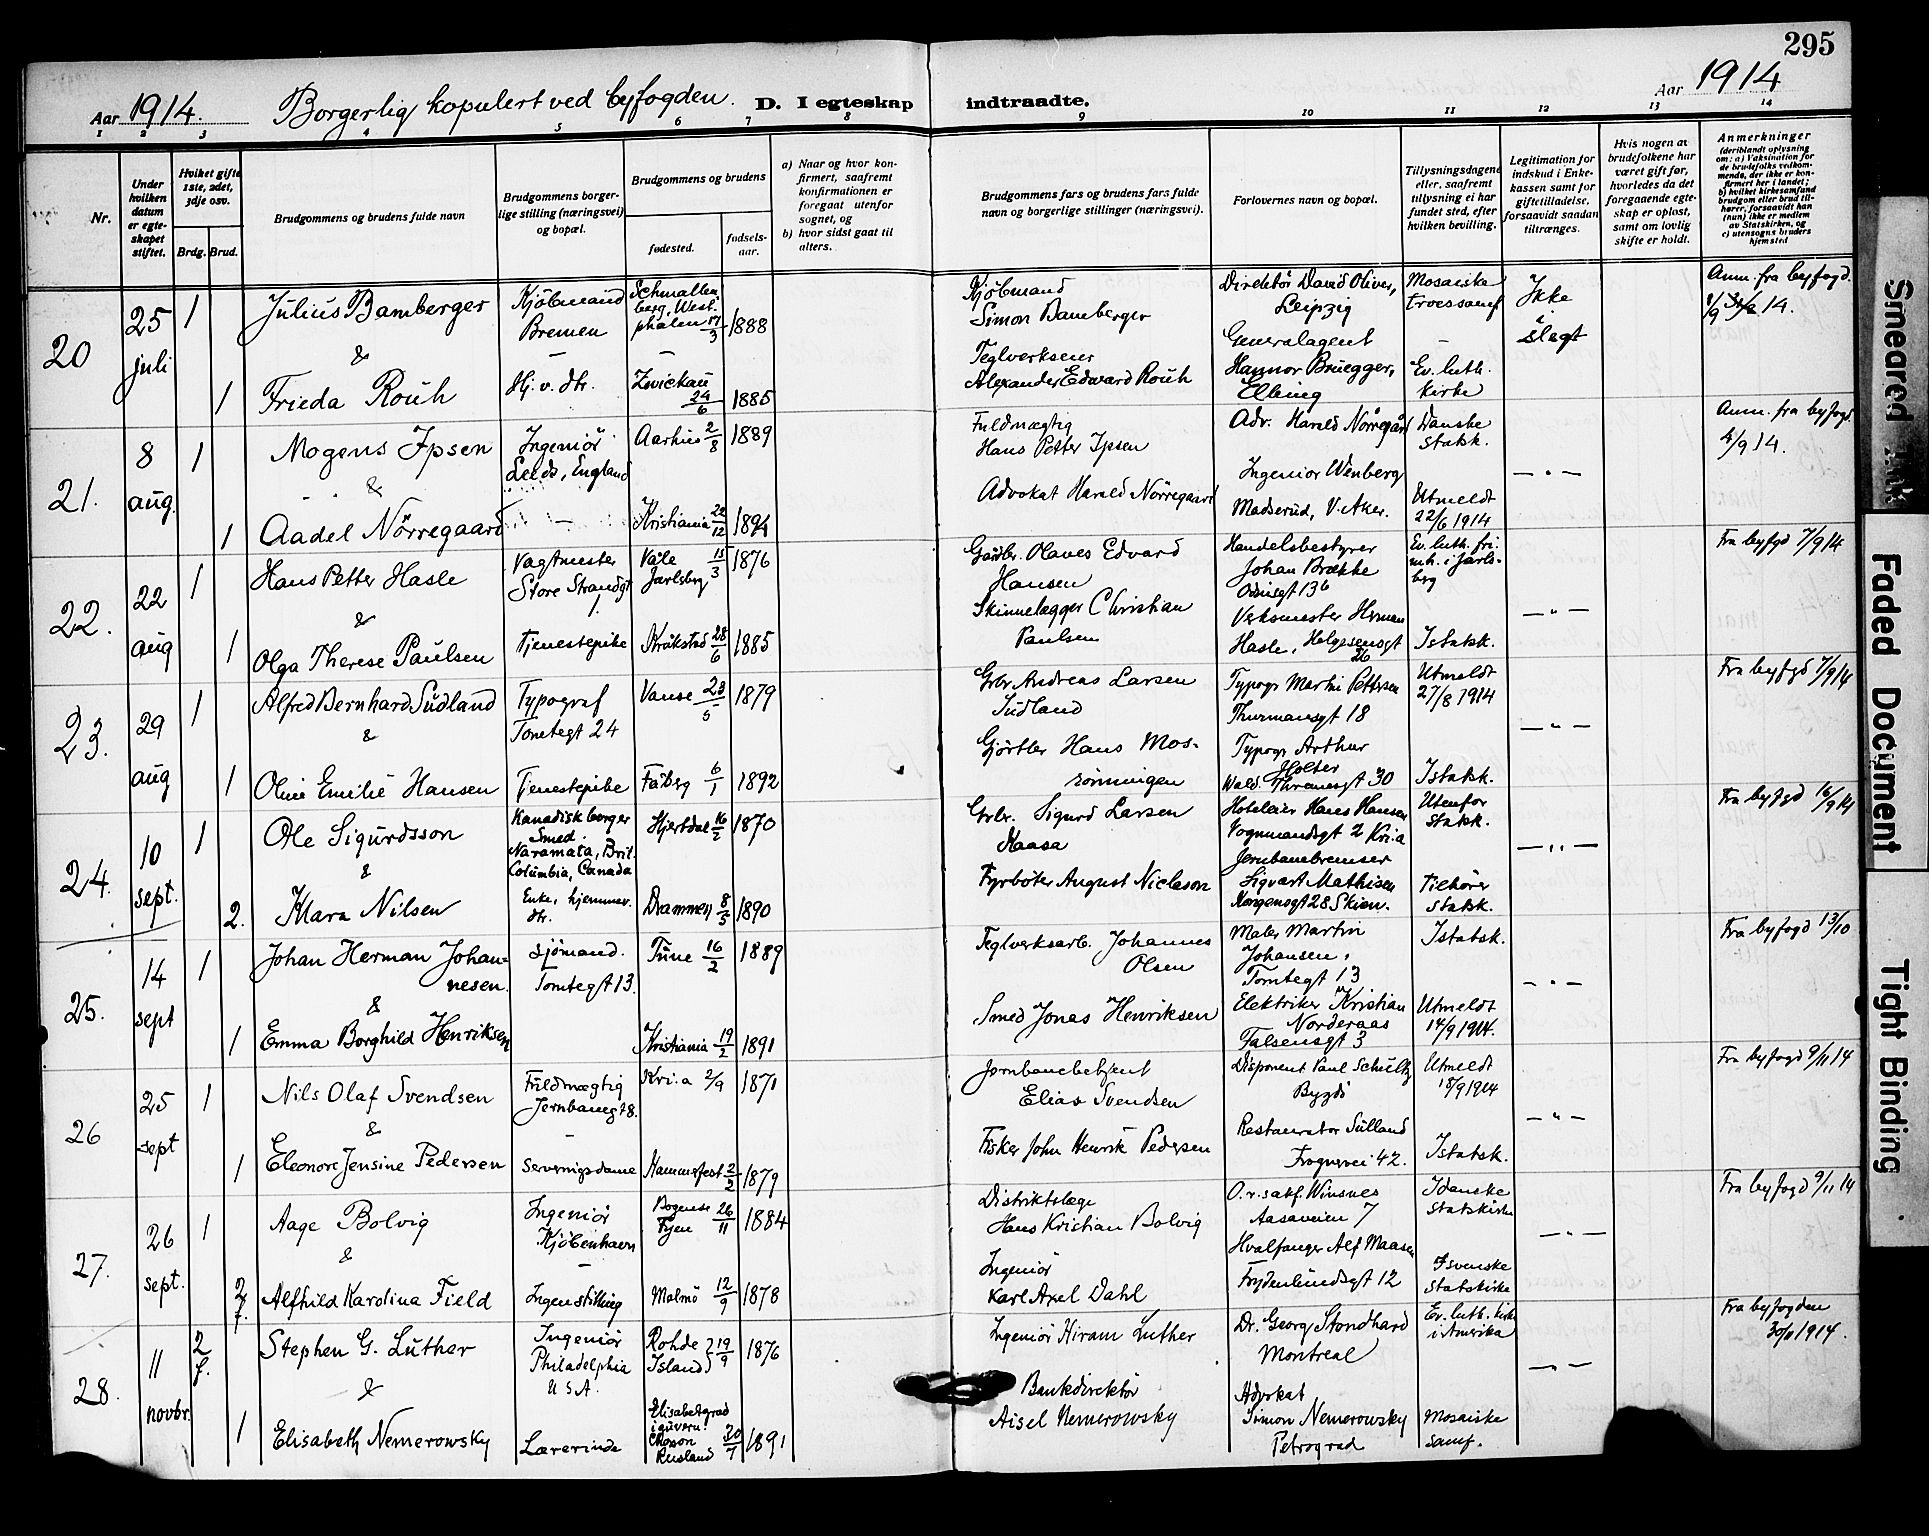 295
Aar 1914.
Borgerlig kopulert ved byfogden.
D. I egteskap indtraadte.
Aar 1914
1 2 3 4 5 6 7 8 9 10 11 12 13 14
Nr.
Under hvilken datum er egteskapet stiftet.
Hvilket gifte 1ste, 2det, 3dje osv.
Brdg. Brud.
Brudgommens og brudens fulde navn
Brudgommens borgerlige stilling (næringsvei) og bopæl.
Brudgommens og brudens
fødested.
fødselsaar.
a) Naar og hvor konfirmert, saafremt konfirmationen er foregaat utenfor sognet, og
b) hvor sidst gaat til alters.
Brudgommens fars og brudens fars fulde navn og borgerlige stillinger (næringsvei).
Forlovernes navn og bopæl.
Tillysningsdagene eller, saafremt tillysning ei har fundet sted, efter hvilken bevilling.
Legitimation for indskud i Enkekassen samt for giftetilladelse, forsaavidt saadan tiltrænges.
Hvis nogen av brudefolkene har været gift før, hvorledes da det foregaaende egteskap er opløst, samt om lovlig skifte er holdt.
Anmerkninger
(deriblandt oplysning om: a) Vaksination for de brudefolks vedkommende, der ikke er konfirmert her i landet; b) hvilket kirkesamfand brudgom eller brud tilhører, forsaavidt han (hun) ikke er medlem av Statskirken, og c) utensogns bruders hjemsted
20
25 juli
1
Julius Bamberger
Kjöbmand
Bremen
Schmallenberg, Westphalen 17/3
1888
Kjöbmand
Simon Bamberger
Direktör David Oliver,
Leipzig
Mosaiske troessamf
Ikke i slegt
Anm. fra byfogd.
&
1
Frieda Rouh
Hj. v. dtr.
Zwickau 24/6
1885
Teglverkseier
Alexander Edward Rouh
Generalagent
Hannor Bruegger,
Elbing
Ev. luth. kirke
21.
8 aug.
1
Mogens Ipsen
Ingeniör
Leeds, England
Aarhus 2/8
1889
Fuldmægtig
Hans Petter Ipsen
Adv. Harald Nörregård
Danske statsk.
Anm. fra byfogd.
4/9 14.
&
1
Aadel Nörregaard
Kristiania 22/12
1894
Advokat Harald Nörregaard
Ingeniör Wenberg
Madserud, V. Aker.
Utmeldt
22/6 1914
— " —
22.
22 aug
1
Hans Petter Hasle
Vagtmester
Store Strandgt 1
Våle Jarlsberg 15/3
1876
Gårdbr. Olaves Edvard
Hansen
Handelsbestyrer
Johan Brække
Odinsgt 13 b
Ev. luth. frimh. i Jarlsberg
Fra byfgd 7/9 14
&
1
Olga Therese Paulsen
Tjenestepike
Kråkstad 28/6
1885
Skinnelægger Christian
Paulsen
Verksmester Herman
Hasle, Helgesensgt 26
I statsk.
— " —
23.
29 aug
1
Alfred Bernhard Sudland
Typograf
Tomtegt 24
Vanse 28/5
1879
Grbr. Andreas Larsen
Sudland
Typogr Martin Pettersen
Thurmansgt 18
Utmeldt
27/8 1914
Fra byfgd 7/9 14
&
1
Oline Emilie Hansen
Tjenestepike
Fåberg 6/1
1892
Gjörtler Hans Mosrönningen
Typogr Arthur
Holter
Wald. Thranesgt 30
I statsk.
— " —
24.
10 sept.
1
Ole Sigurdsson
Kanadisk borger
Smed
Naramata, Brit.
Columbia, Canada
Hjertdal 16/2
1870
Grbr. Sigurd Larsen
Kaasa
Hoteleier Hans Hansen
Vognmandsgt 2 Kri.a
Utenfor statsk.
Fra byfgd 16/9 14
&
2.
Klara Nilsen
Enke, hjemmev. dtr.
Drammen 8/5
1890
Fyrböter August Niclason
Jernbanebremser
Sigvart Mathisen
Korgensgt 28 Skien.
Tilhörer statsk.
— " —
25.
14 sept
1
Johan Herman Johannesen.
Sjömand.
Tomtegt 13.
Tune 16/2
1889
Teglverksarb. Johannes
Olsen
Maler Martin
Johansen,
Tomtegt 13
I statsk.
Fra byfogd 13/10
&
1
Emma Borghild Henriksen
Kristiania 19/2
1891
Smed Jonas Henriksen
Elektriker Kristian
Norderaas
Falsensgt 3
Utmeldt
14/9 1914.
— " —
26
25 sept
1
Nils Olaf Svendsen
Fuldmægtig
Jernbanegt 8.
Kri.a 2/9
1871
Jernbanebetjent
Elias Svendsen
Disponent Paul Schultz
Bygdö
Utmeldt
18/9 1914
Fra byfogd 9/11 14
&
1
Eleonore Jensine Pedersen
Serveringsdame
Hammerfest 2/2
1879
Fisker John Henrik Pedersen
Restauratör Sulland
Frognervei 42.
I statsk.
— " —
27.
26 sept.
1
Aage Bolvig
Ingeniör
Kjöbenhavn
Bogense Fyen 26/11
1884
Distriktslæge
Hans Kristian Bolvig
O.r.sakf. Winsnes
Aasaveien 7
I danske statskirke
Fra byfogd 9/11 14
&
2 f.
Alfhild Karolina Field
Ingen stilling
Malmö 12/9
1878
Ingeniör
Karl Axel Dahl
Hvalfanger Alf Maasen
Frydenlundsgt 12
I svenske statskirke
— " —
28.
11 novbr.
2 f.
Stephen G. Luther
Ingeniör
Philadelphia
U S A.
Rohde Island 19/9
1876
Ingeniör Hiram Luther
Dr. Georg Stondhard
Montreal
Ev. luth. kirke i Amerika
Fra byfogden
30/11 1914.
&
1
Elisabeth Nemerowsky
Lærerinde
Elisabetgrad i guvern. Cherson Rusland 30/7
1891
Bankdirektör
Aisel Nemerowsky
Advokat
Simon Nemerowsky
Petrograd
Mosaiske samf.
— " —
Smeared Ink
Faded Document
Tight Binding